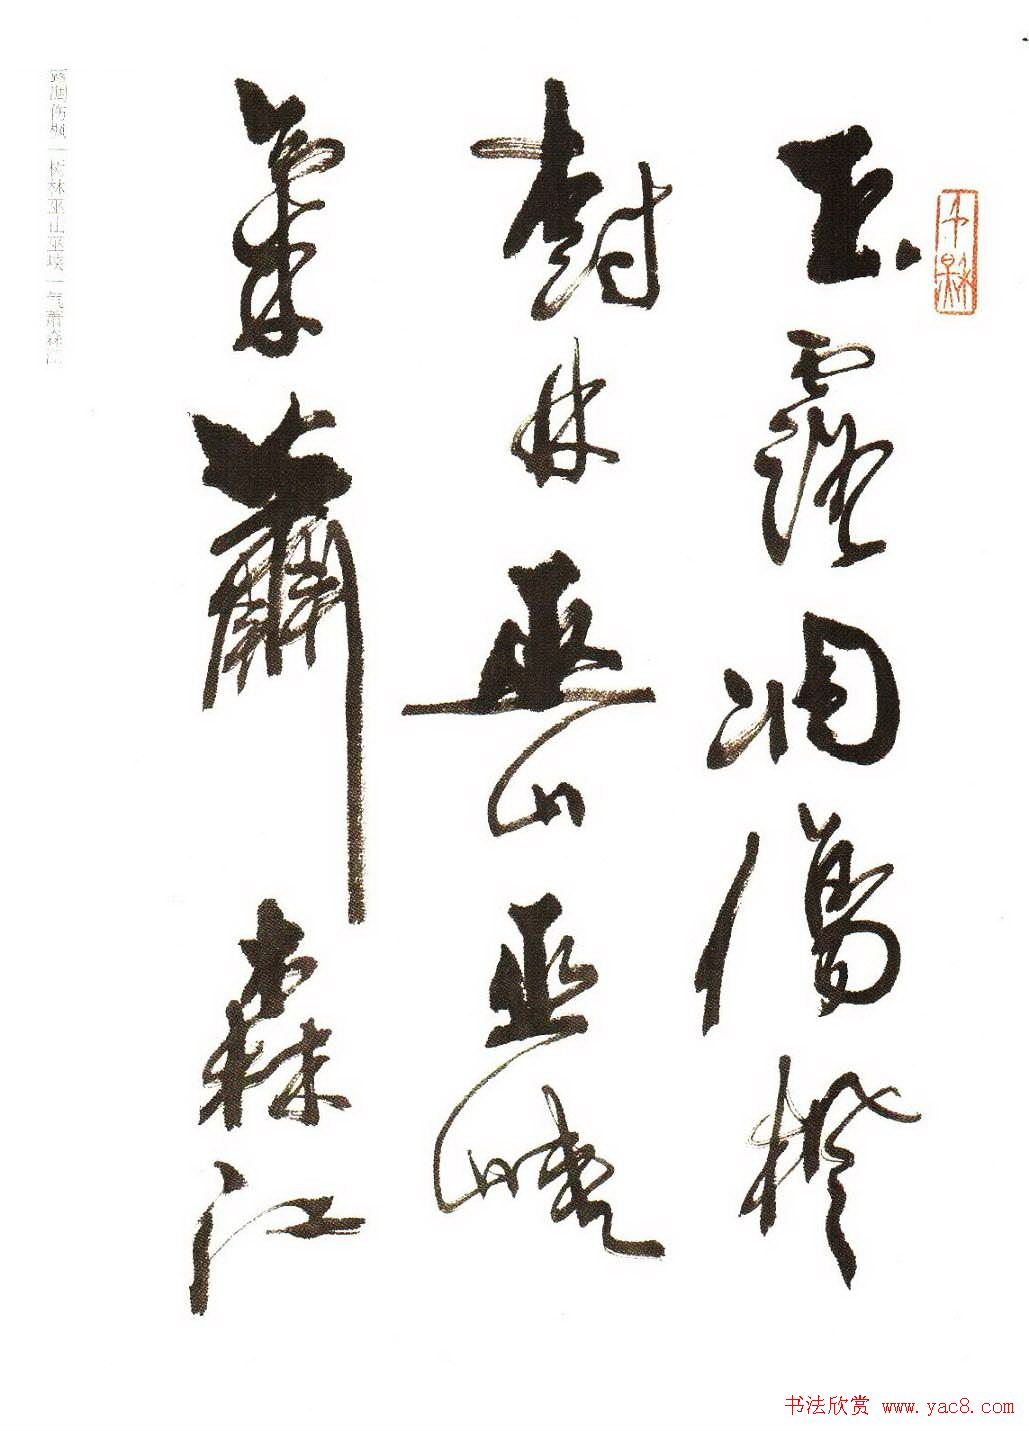 玉露凋傷楓
樹林巫山巫峽
氣蕭森江
露凋伤枫|树林巫山巫峡|气萧森江
书法欣赏 www.yac8.com